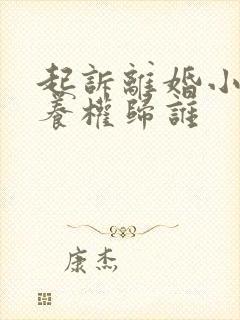 起訴離婚小
養權歸誰
康杰